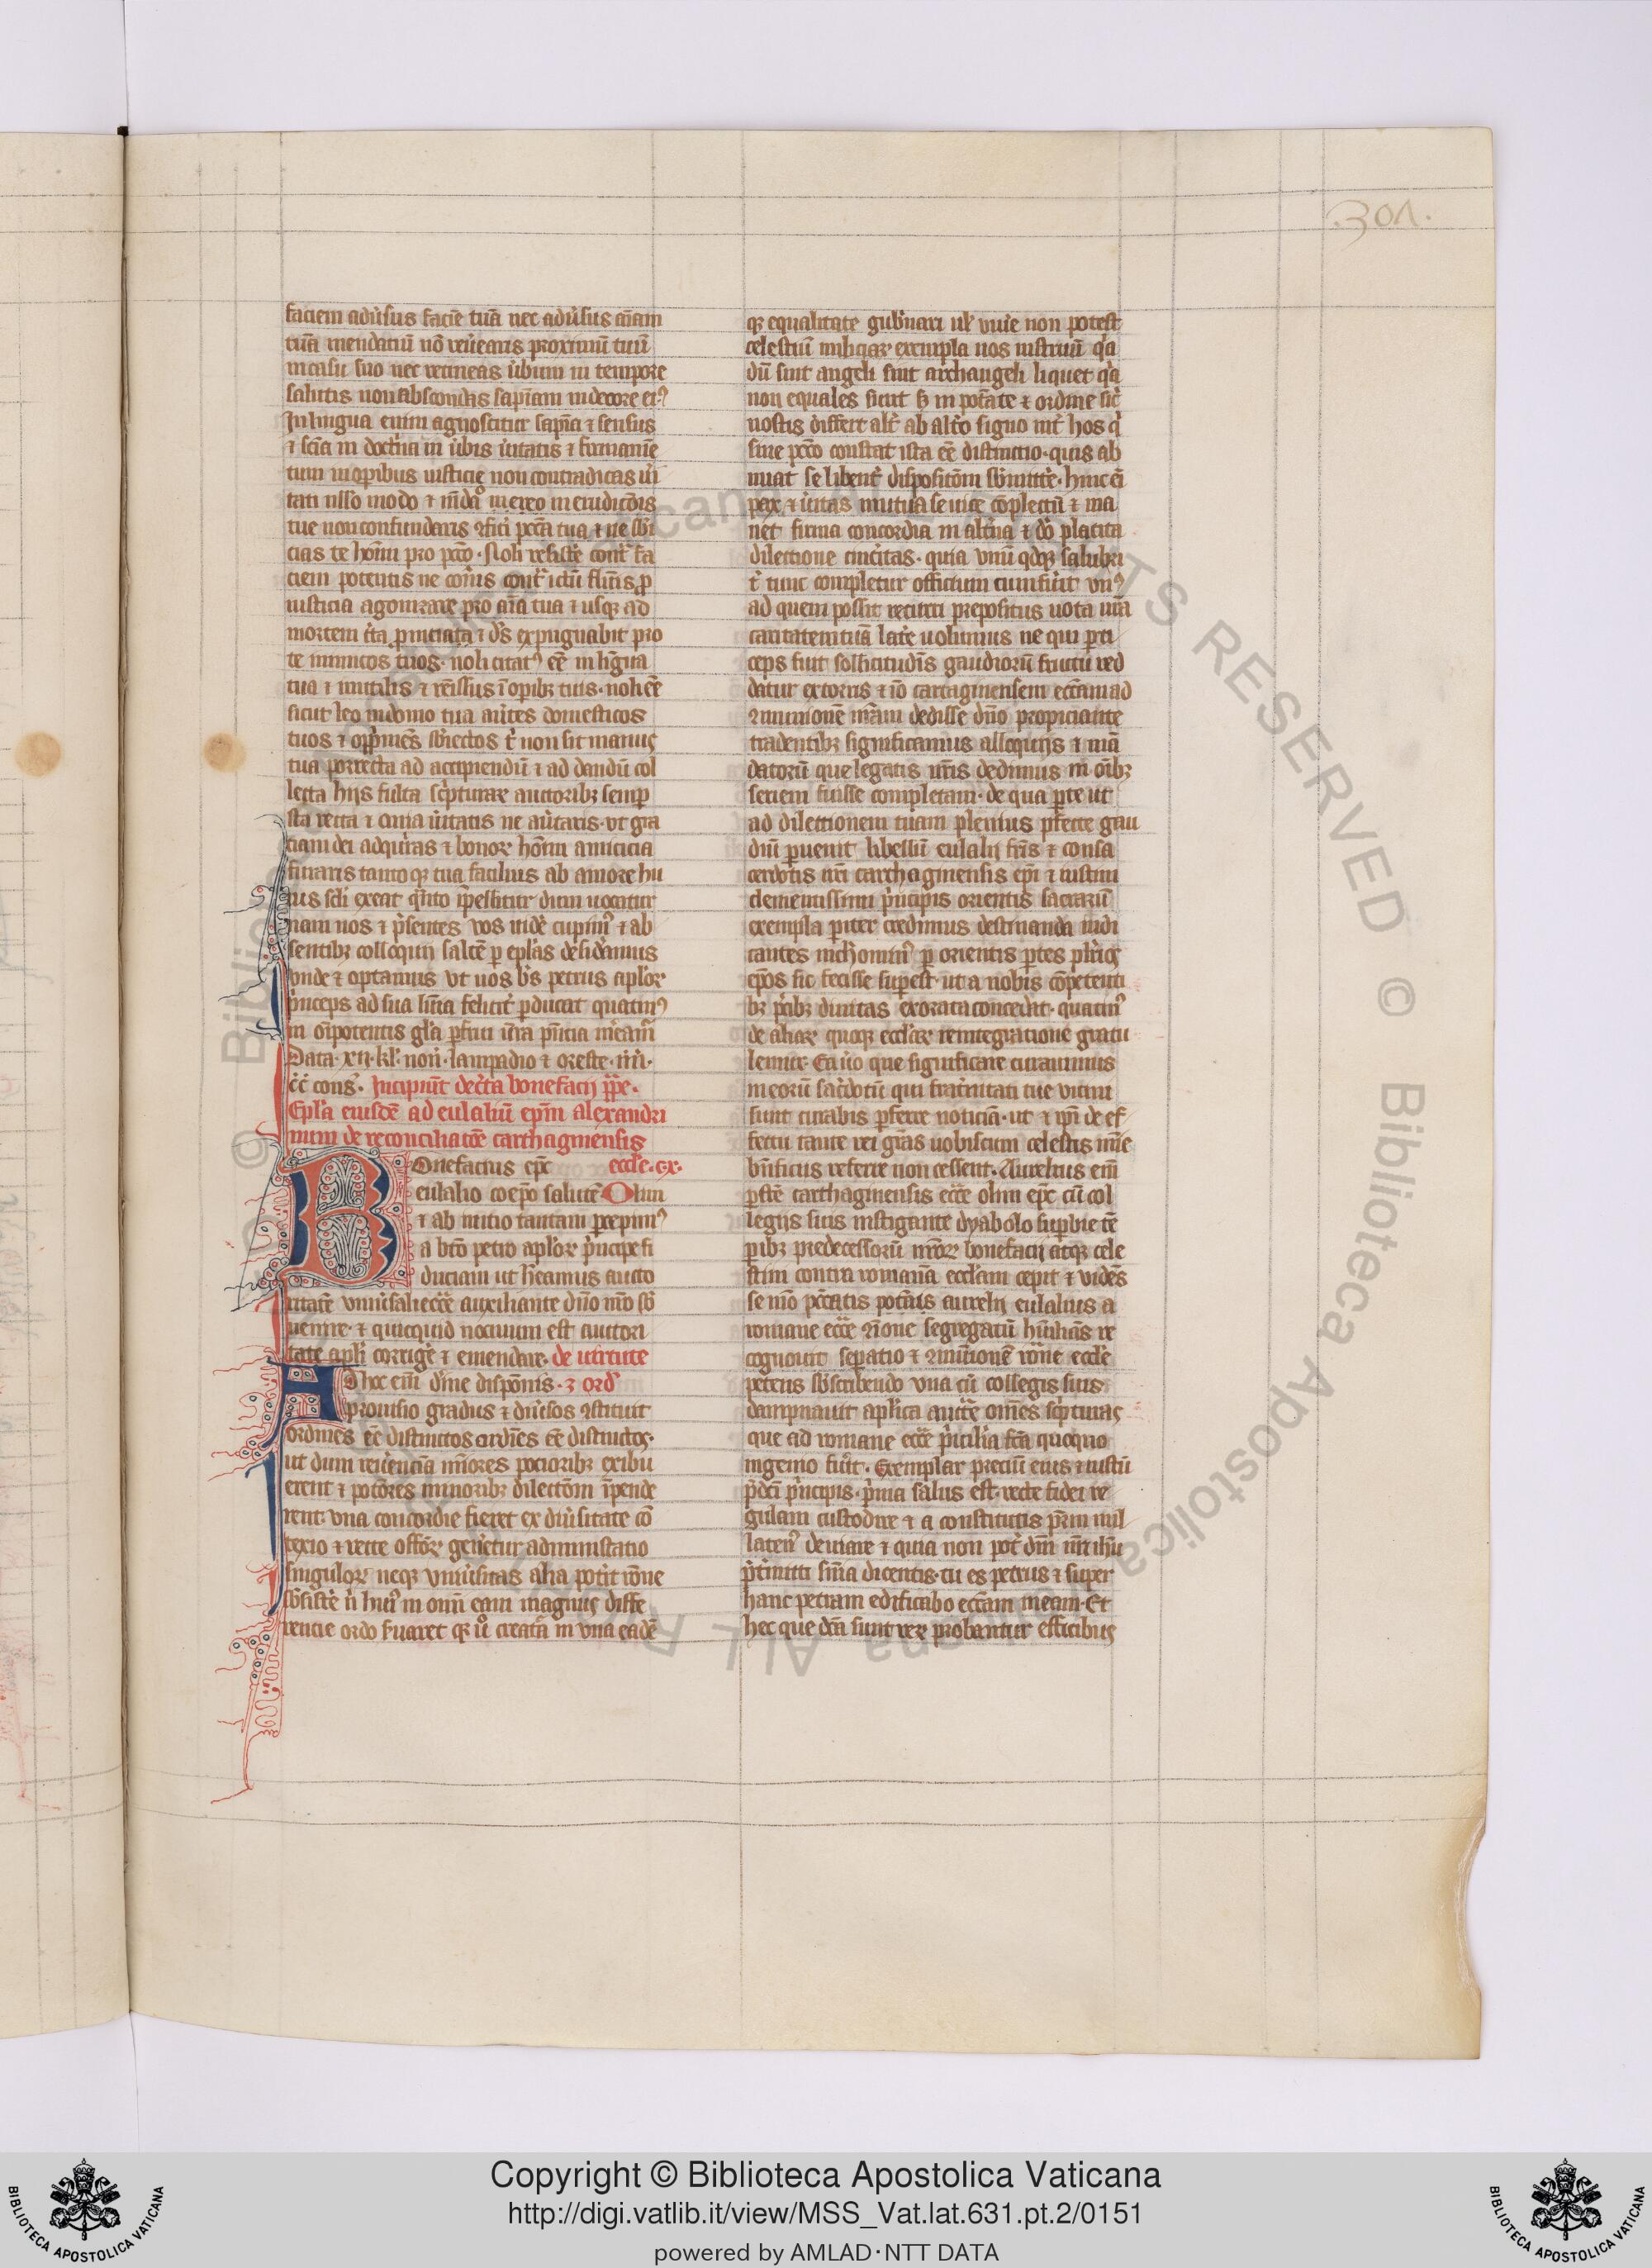 .301.
faciem adu'sus facie tuā nec adu'sus aīam
tuā mendatiū nō reu'earis proximū tuū
incasu suo nec retineas u'bum in tempore
salutis non abscondas sapīam indecore ei9
In lingua enim agnoscitur sapīa ⁊ sensus
⁊ scīa in doct'na in u'bis u'itatis ⁊ firmamē
tum in op̄ibus iusticie non contradicas u'i
tati ullo modo ⁊
tue non confundaris ꝯfit'i pccā tua ⁊ ne sb'i
cias te hōni pro pccō. Noli resiste cont' fa
ciem potentis ne cone'is cont' ictū flu'is ꝓ
iusticia agonizare pro aīa tua ⁊ usq; ad
mortem c'ta ꝓ iusticia ⁊ d's expugnabit pro
te inimicos tuos. noli citat9 eē in līgua
tua ⁊ inutilis ⁊ remissus ī opib; tuis. noli eē
sicut leo indomo tua au'tes domesticos
tuos ⁊ opp'mēs sb'iectos t' non sit manus
tua porrecta ad accipiendū ⁊ ad dandū col
lecta hijs fulta sc'pturar auctorib; semp
sta recta ⁊ cuīa u'itatis ne au'taris. vt gra
ciam dei adquiras ⁊ honor hōīm amicicia
tantoq; tua facilius ab amore hu
ius sc'li exeat
nam nos ⁊ p'sentes vos uide' cupim9 ⁊ ab
sentib; colloquij saltē ꝑ epl'as desid'amus
vnde ⁊ optamus vt uos b's petrus apl'or
p'nceps ad sua lim̄a felicit' ꝓducat quatin9
in oīpotentis gl'a ꝑfrui
Data. xii. kl'. non'. lampadio ⁊ oreste. uu.
cc' cons'. Incipiūt dec'ta bonefacij pp̄e.
Epl'a eiusdē ad eulaliū ep̄m alexandri
num de reconciliatōe carthaginensis
Bonefacius ep̄c eccl'e. ex.
eulalio coep̄o salutē Olim
⁊ ab initio tantam ꝑcepim9
a bt̄o petro apl'or p'ncipe fi
duciam ut h'eamus aucto
ritatē vniu'sali ecc'e auxiliante dn̄o nr̄o sb'
uenire. ⁊ quicquid nociuum est auctori
tate apl'i corrige' ⁊ emendare. de uirtute
Ad hoc eīm d'ine disposi'nis. ⁊ ord'
prouisio gradus ⁊ diu'sos ꝯstituit
ordines eē distinctos ordīes eē distinctos.
ut dum reu'enciā mīores pociorib; exibu
erent ⁊ potiores minorib; dilectōem īpende
rent. vna concordie fieret ex diu'sitate cō
texio ⁊ recte offi'or gen'etur administatio
singulor neq; vniu'sitas alia pot'it rōne
sb'siste' n' hui9 in om̄i eam magnus diffe
rencie ordo s'uaret q; u'o creat'a in vna eadē
q; equalitate gub'nari ul' viu'e non potest
celestiū miliciar exempla nos instruūt q'a
dū sint angeli sint archangeli liquet q'a
non equales sicut s; in potate ⁊ ordine sic'
nostis differt alt' ab alt'o signo int' hos q'
sine pccō constat ista eē distinctio. quis ab
nuat se libent' dispositōni sb'mitte'. hinc ei
pax ⁊ c'itas mutua se uice cōplectūt ⁊ ma
net firma concordia in alt'na ⁊ dō placita
dilectione sinc'itas. quia vnū qdq; salubri
t' tunc completur officium cum fu'it vn9
ad quem possit recurri prepositus uota ur̄a
caritatem tuā late' uolumus ne qui ꝑti
ceps fuit sollicitudīs gaudiorū fructū red
datur extorris ⁊ iō cartaginensem ecc'am ad
ꝯmunionē nr̄am dedisse dn̄o propiciante
tradentib; significamus alloquijs ⁊ mā
datorū que legatis nr̄is dedimus in oīb;
seriem fuisse completam. de qua ꝑte ut
ad dilectionem tuam plenius ꝑferre gau
diū ꝑuenit libellū eulalij fr̄is ⁊ consa
cerdotis nr̄i carthaginensis ep̄i ⁊ iustini
clementissimi p'ncipis orientis sacrarū
exempla ꝑiter credimus destinanda indi
cantes nichomin9 ꝑ orientis ꝑtes pl'ios
ep̄os sic fecisse suꝑest ut a nobis cōpetenti
b; p'cib; diuitas exorata concedat. quatin9
de aliar quoq; eccl'iar reintegratione gratu
lemur. Ea u'o que significare curauimus
meorū sac'dotū qui frat'nitati tue vitam
sunt curabis ꝑferre noticiā. ut ⁊ ip̄i de ef
fectu tante rei gr̄as uobiscum celestis mīe
bn̄ficus referre non cessent. Aurelius eīm
carthaginensis ecc'e olim ep̄c cū col
legijs suis instigante dyabolo suꝑbie tē
ꝑib; predecessorū nr̄or bonefacij atq; cele
stini contra romanā eccl'iam cepit ⁊ vidēs
se mō pccatis aurelij eulalius a
romane ecc'e ꝯīone segregatū humiliās re
cognouit seꝑatio ⁊ ꝯmunionē rōne eccl'e
petens sb'scribendo vna cū collegis suis
dampnauit aplica auct'e omēs sc'pturas
que ad romane ecc'e p'iuil'ia fcā quoquo
ingenio fu'it. Exemplar precū eius ⁊ iustī
p'dci p'ncipis. p'ma salus est. recte fidei re
gulam custodire ⁊ a constitutis pr̄m nul
laten9 deuiare ⁊ quia non pot' dn̄i nr̄i ih'u
p't'mitti sn̄ia dicentis. tu es petrus ⁊ super
hanc petram edificabo ecc'am meam. Et
hec que dcā sunt rer probantur effectibus
Copyright © Biblioteca Apostolica Vaticana
http://digi.vatlib.it/view/MSS_Vat.lat.631.pt.2/0151
powered by AMLAD·NTT DATA